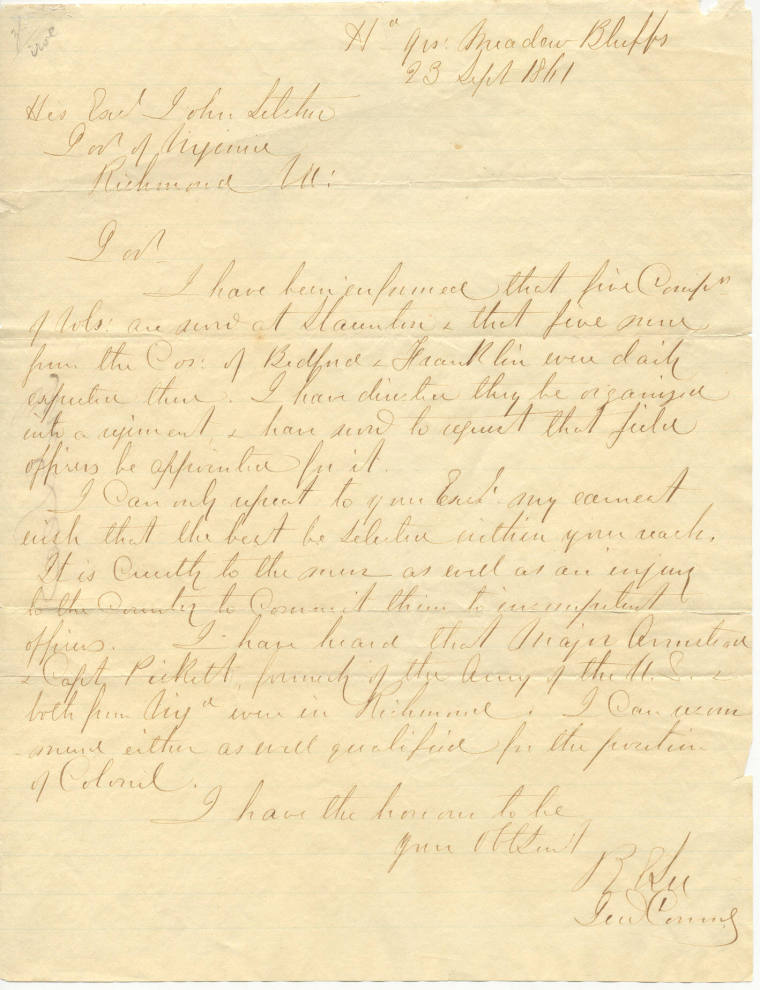 Hd Qrs: Meadow Bluffs
23 Sept 1861
His Excy John Letcher
Govr of Virginia
Richmond Va:
Govr
I have been informed that five Compys
of Vols: are now at Staunton & that five more
from the Cos: of Bedford & Franklin were daily
expected there. I have directed they be organized
into a regiment, & have now to request that field
officers be appointed for it.
I can only repeat to your Excy my earnest
wish that the best be selected within your reach.
It is cruelty to the men as well as an injury
to the Country to commit them to incompetent
officers. I have heard that Major Armistead
& Capt Pickett, formerly of the Army of the U. S. &
both from Virga were in Richmond. I can recom
mend either as well qualified for the position
of Colonel.
I have the honour to be
your Obt Servt
R E Lee
Genl Commg